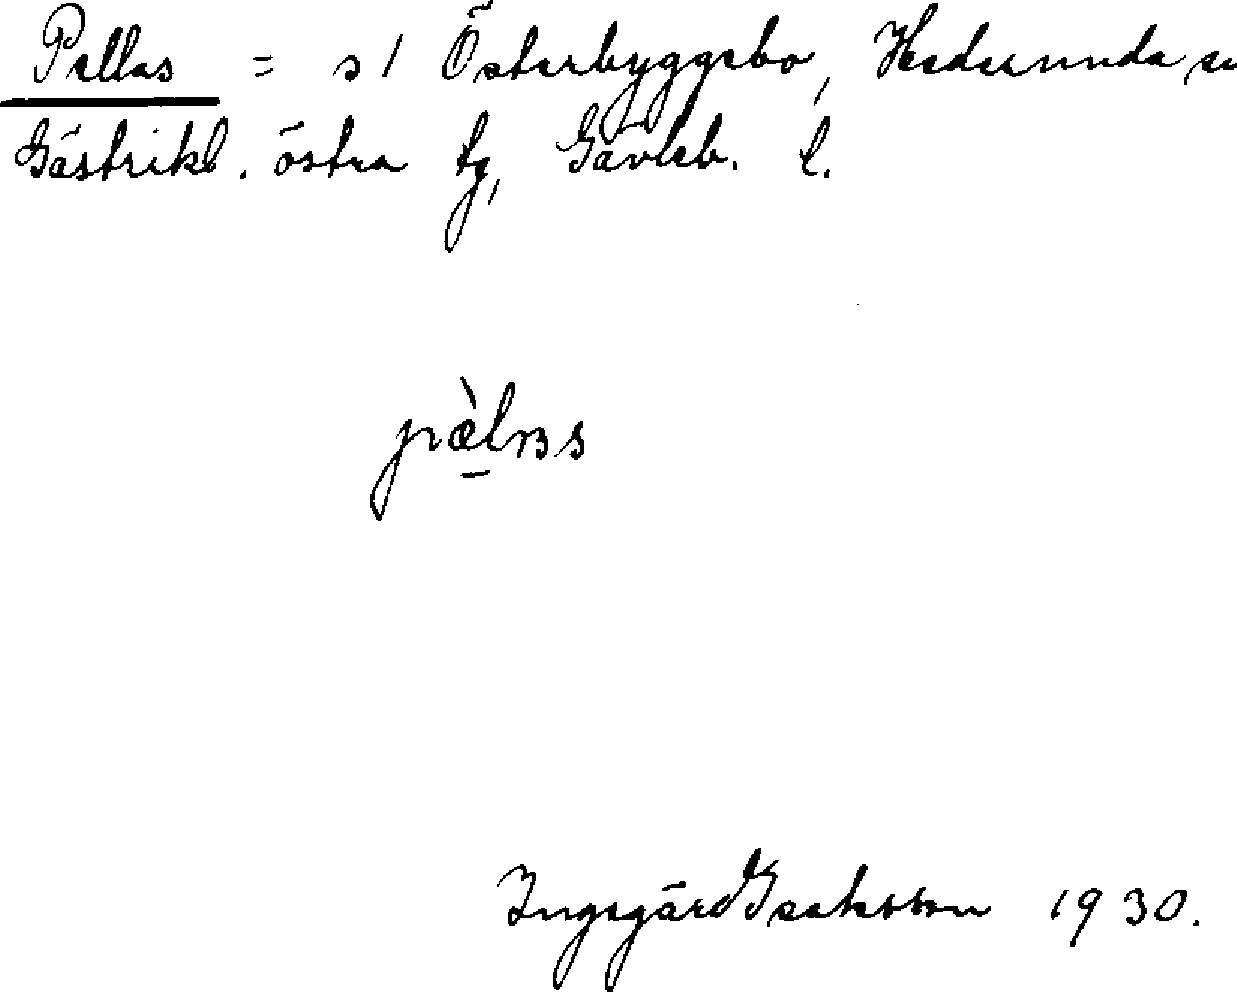 Pellas = s/ Österbyggebo, Hedesunda sn
Gästrikl. östra tg, Gävleb. l.
pæ̀las
Ingegärd Isaksson 1930.